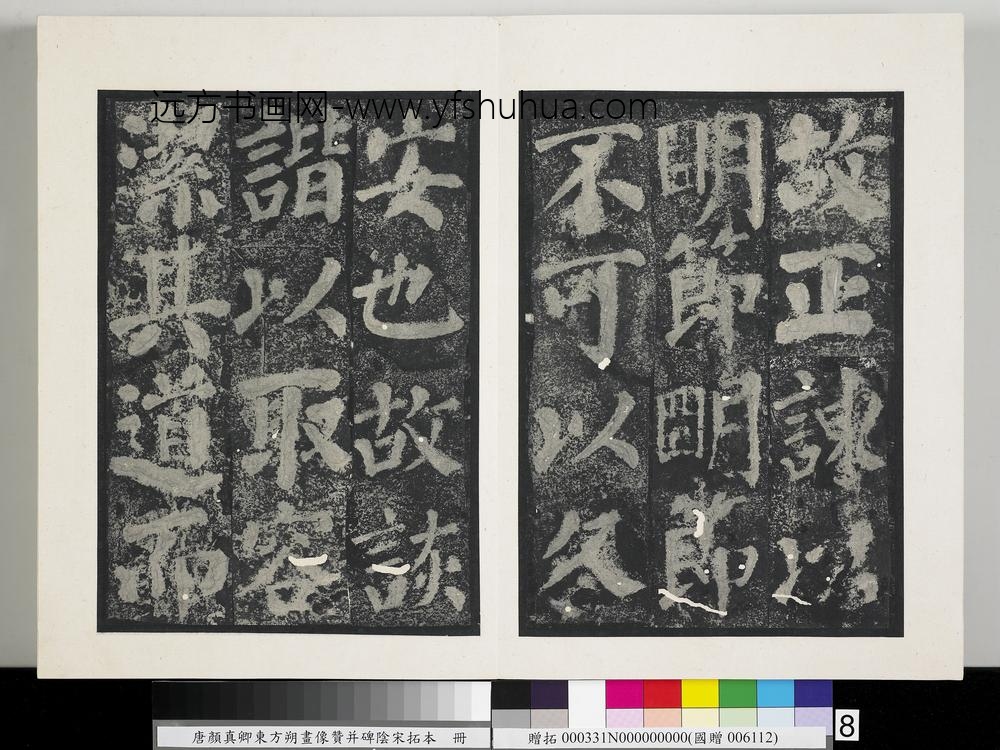 远方书画网-www.yfshuhua.com
故正諫以
明節明節
不可以久
安也故詼
諧以取容
潔其道而
唐顏真卿東方朔畫像贊并碑陰宋拓本 冊
贈拓 000331N000000000(國贈 006112)
8